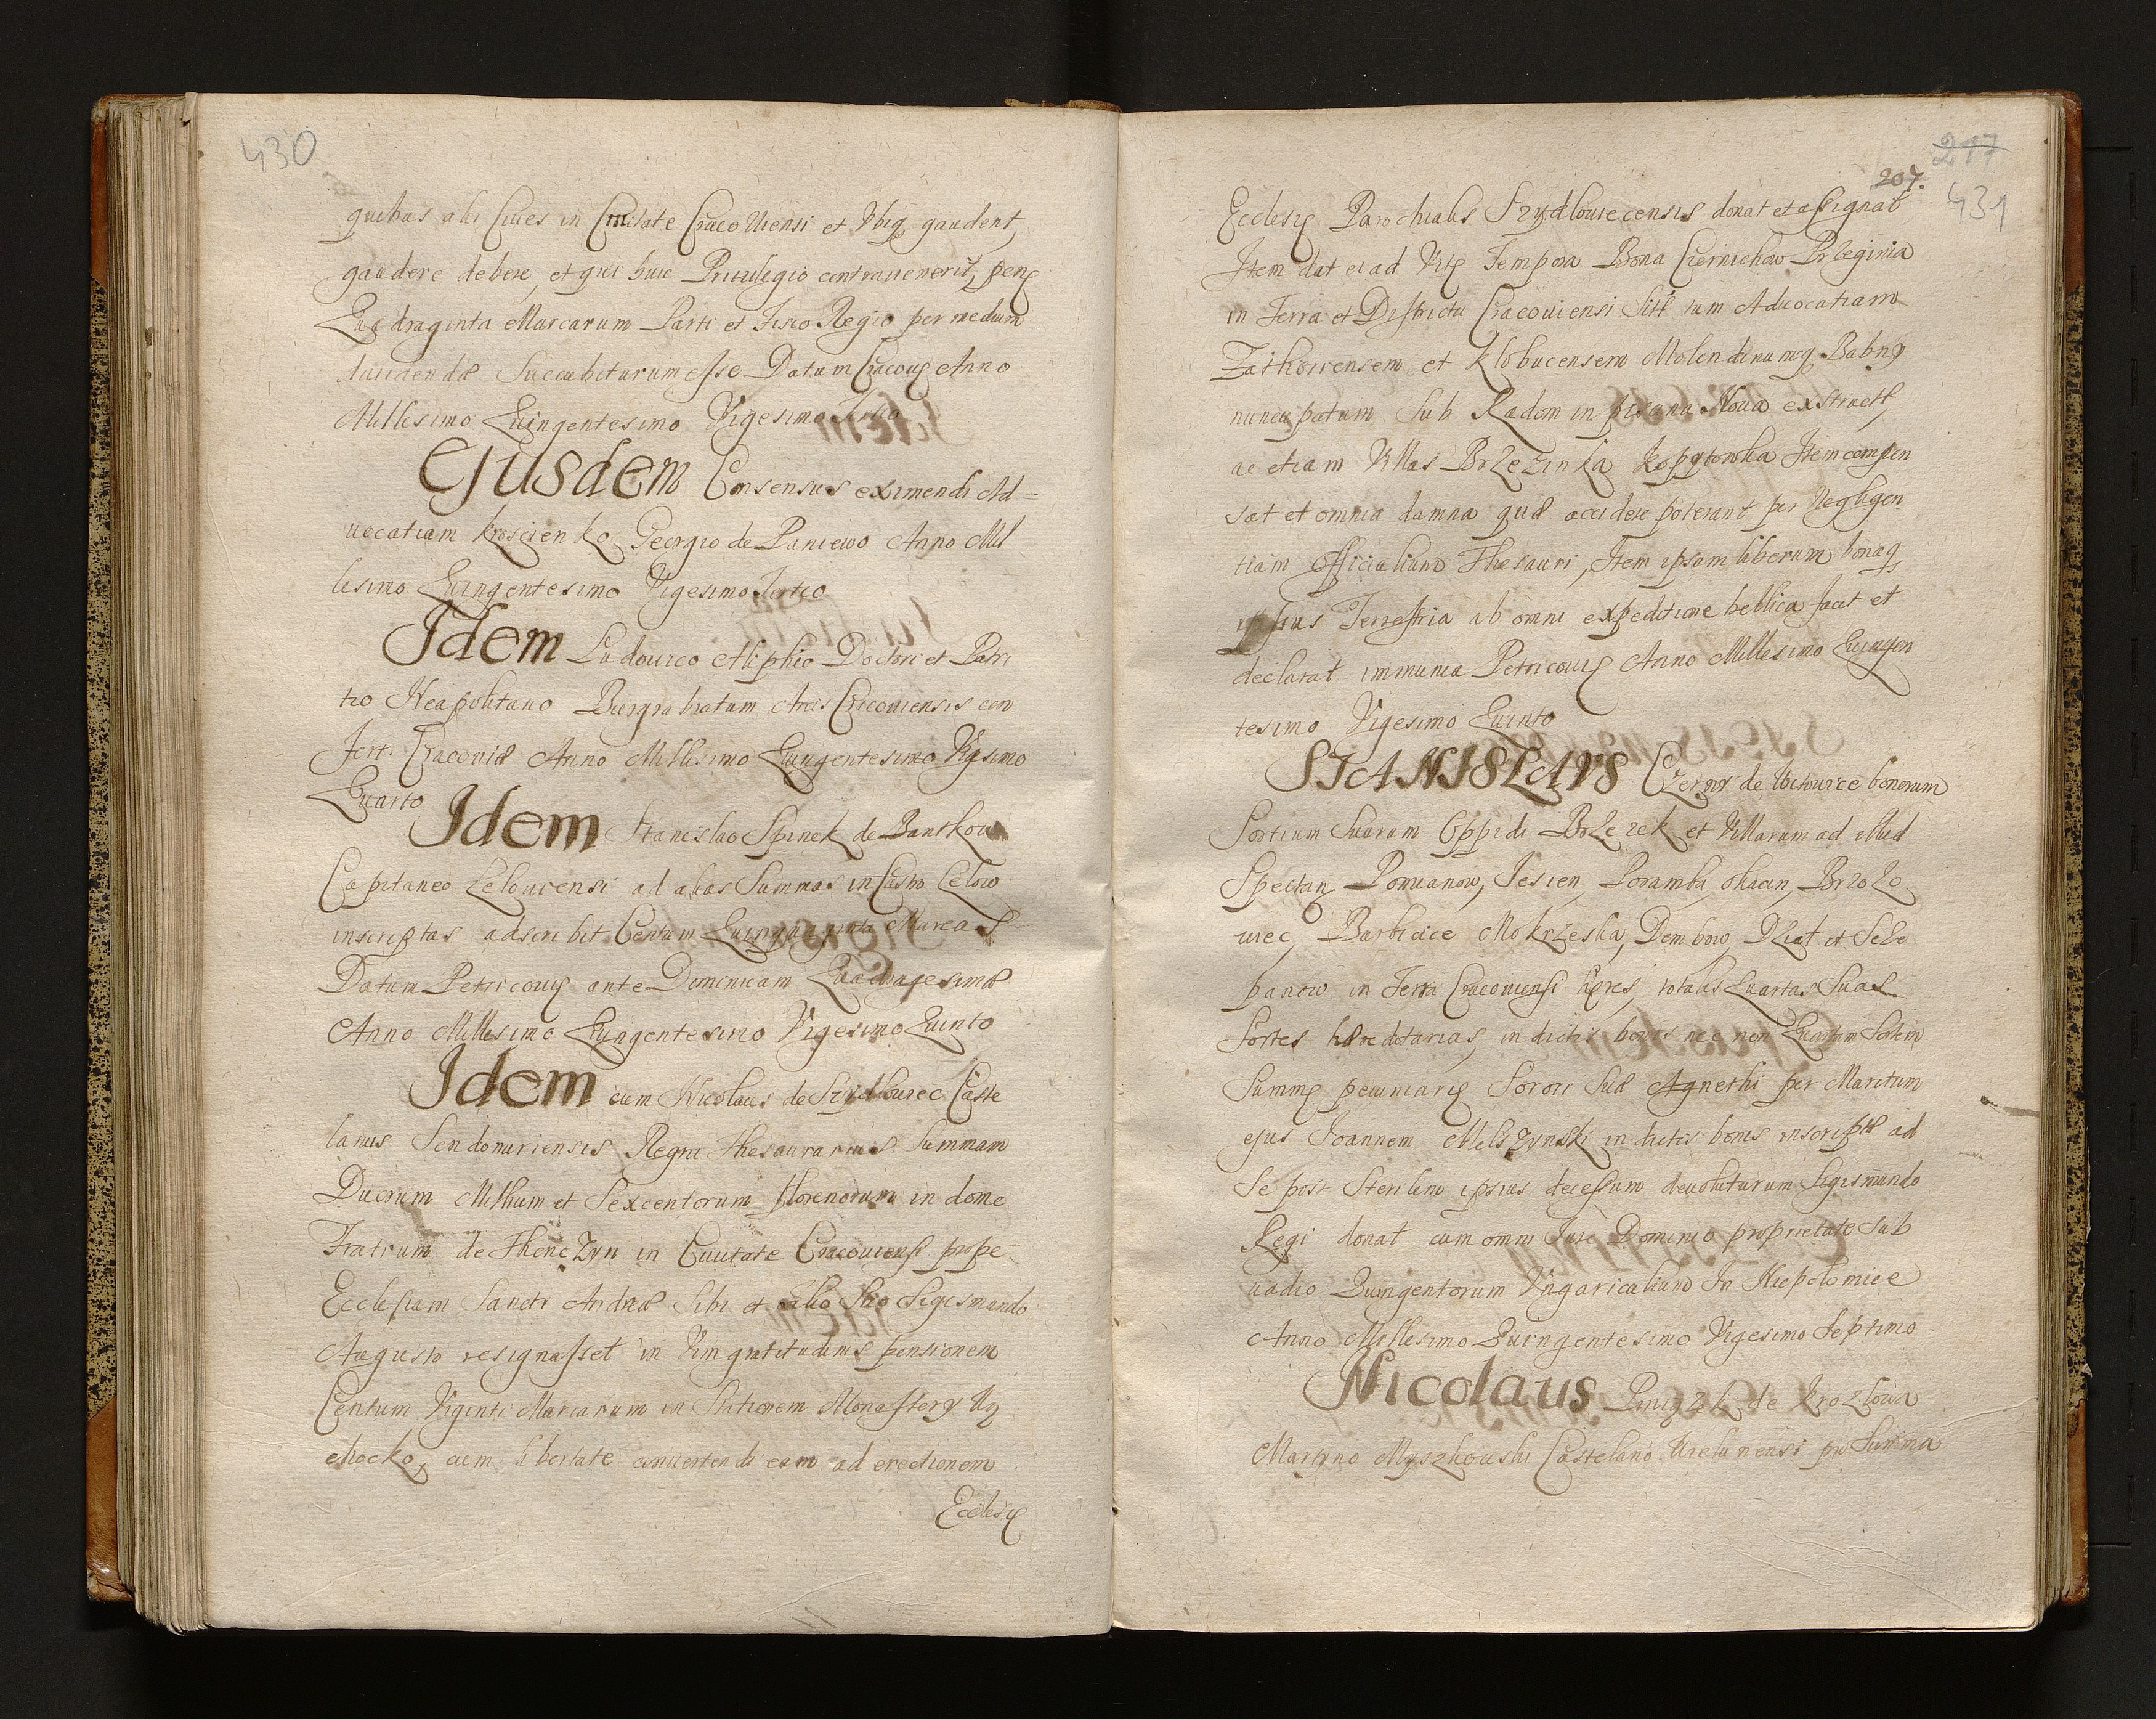 430
quibus alii Ciues in Ciuitate Cracouiensi et Vbiq gaudent,
gaudere debere, et qui huic Priuilegio contrauenerit, penę
Quadraginta Marcarum Parti et Fisco Regio per medium
diuidendæ Succubiturum esse Datum Cracouię Anno
Millesimo Quingentesimo Vigesimo Tertio
Ejusdem Consensus eximendi Ad=
uocatiam Kroscienko Georgio de Paniewo Anno Mil
lesimo Quingentesimo Vigesimo Tertio
Idem Ludouico Aliphio Doctori et Patri
tio Neapolitano Burgrabiatum Arcis Cracouiensis con
fert. Cracouiæ Anno Millesimo Quingentesimo Vigesimo
Quarto
Idem Stanislao Spinek de Bantkow
Capitaneo Lelouiensi ad alias Summas in Castro Lelow
inscriptas adscribit Centum Quinquaginta Marcas
Datum Petricouię ante Dominicam Quadragesimæ
Anno Millesimo Quingentesimo Vigesimo Quinto
Idem cum Nicolaus de Szydlouiec Caste
lanus Sendomiriensis Regni Thesaurarius Summam
Duorum Millium et Sexcentorum florenorum in domo
Fratrum de Thenczyn in Ciuitate Cracouiensi prope
Ecclesiam Sancti Andreæ Sibi et filio Suo Sigismundo
Augusto resignasset in Vim gratitudinis pensionem
Centum Viginti Marcarum in Stationem Monastery Wą
chocko, cum libertate conuertendi eam ad erectionem
Ecclesię
217
207.
431
Ecclesię Parochialis Szydlouiecensis donat et assignat
Item dat ei ad Vitę Tempora Bona Czernichow Przeginia
in Terra et Districtu Cracouiensi Sitt tum Aduocatiam
Zathorensem et Klobucensem Molendinumq Babný
nuncupatum Sub Radom in piscina Noua exstruct,
ac etiam Villas Brzezinka Kopytowka Item compen
sat et omnia damna quæ accidere poterant per Negligen
tiam Officialium Thesauri, Item ipsum liberum bonaq
ipsius Terrestria ab omni expeditione bellica facit et
declarat immunia Petricouię Anno Millesimo Quingen
tesimo Vigesimo Quinto
STANISLAVS Czerny de Witowice bonorum
Sortium Suarum Oppidi Brzezek et Villarum ad illud
Spectan Pomianow, Jesien, Poramba, Okacin, Brzozo
wiec, Barbicice Mokrzeska, Dembow, Dział et Szcze
panow in Terra Cracouiensi hæres, totales Quartas Suas
Sortes hæreditarias, in dictis bonis nec non Quartam Sortem
Summę pecuniarię Sorori Suæ Agnethi per Maritum
ejus Joannem Melszynski in dictis bonis inscriptæ ad
Se post Sterilem ipsius decessum deuoluturam Sigismundo
Regi donat cum omni Jure Dominio proprietate Sub
vadio Quingentorum Vngaricalium In Niepolomice
Anno Millesimo Quingentesimo Vigesimo Septimo
Nicolaus Piniązek de Krozlowa
Martino Myszkouski Castelano Wielunensi pro Summa